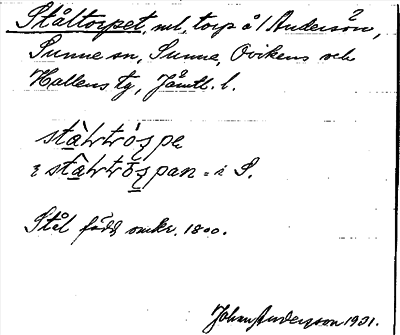 Ståltorpet, ml, torp å 1 Andersön,
Sunne sn, Sunne, Ovikens och
Hallens tg, Jämtl. l.
i S.
Stål född omkr. 1800.
Johan Andersson 1931.